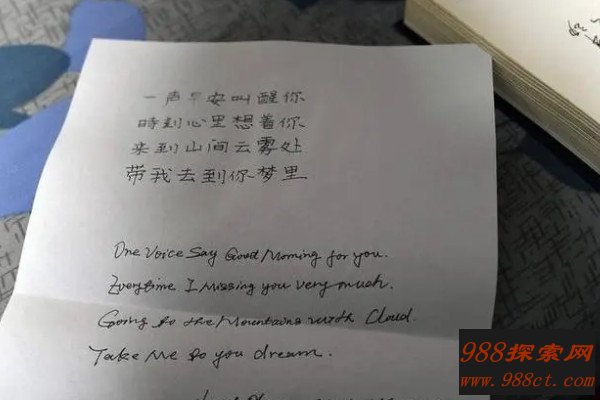 一声早安叫醒你
時刻心里想着你
来到山间云雾处
带我去到你梦里
One Voice Say Good Morning for you.
Everytime I Missing you very much.
Going to the Mountains with Cloud.
Take Me to you dream.
988探索网
www.988ct.com